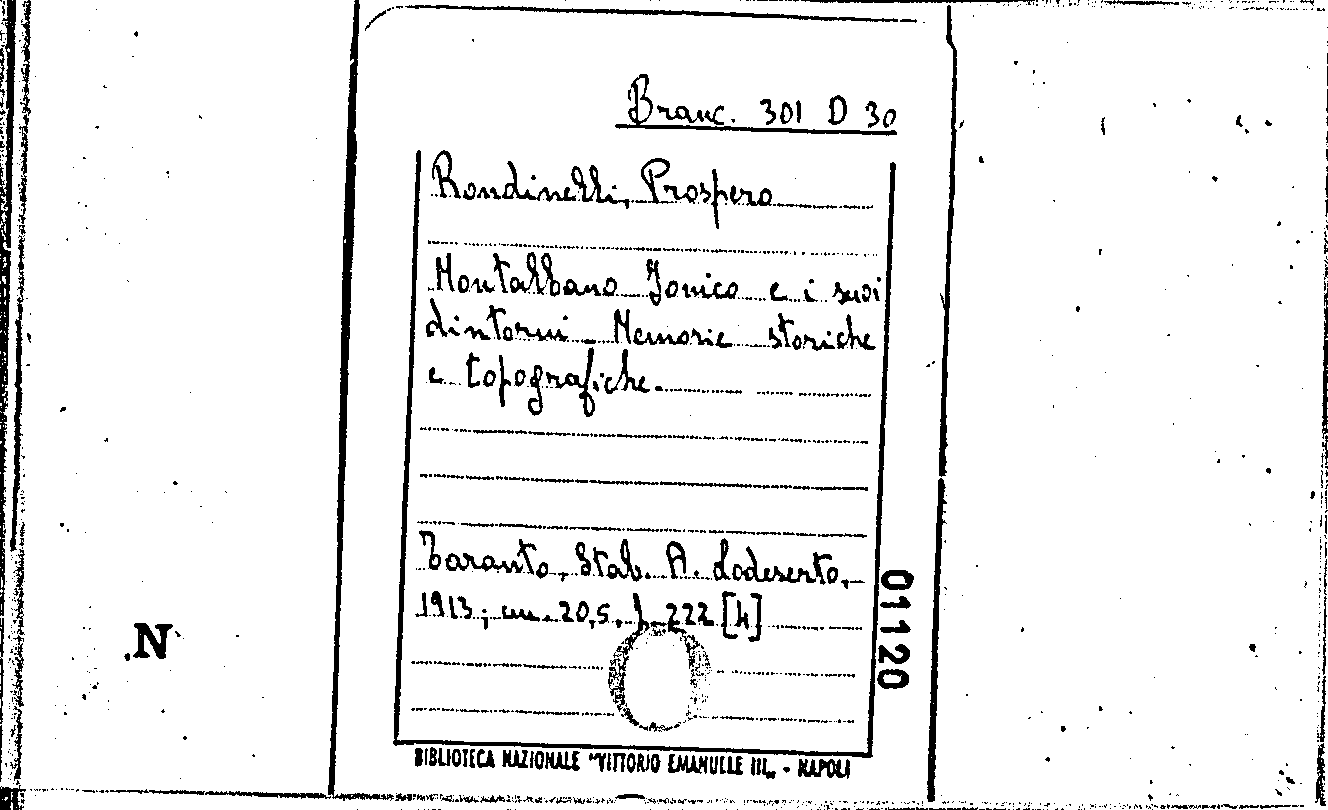 Branc. 301 D 30
Rondinelli, Prospero
Montalbano Jonico e i suoi
dintorni. Memorie storiche
e topografiche.
Taranto, Stab. A. Lodeserto,
1913; cm. 20,5, p. 222 [4]
01120
.N
BIBLIOTECA NAZIONALE "VITTORIO EMANUELLE III„ - NAPOLI